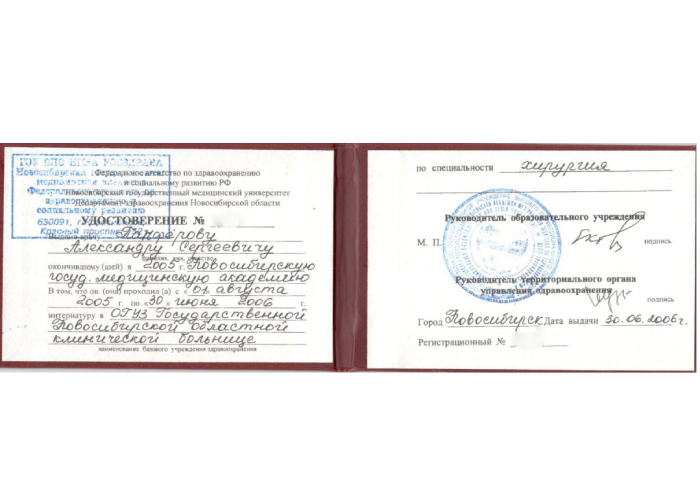 ГОУ ВПО НГМА РОСЗДРАВА
Новосибирская государственная
медицинская академия
Федерального агентства по
здравоохранению и
социальному развитию
630091, г. Новосибирск
Красный проспект, 52
Федеральное агентство по здравоохранению
и социальному развитию РФ
Новосибирский государственный медицинский университет
Департамент здравоохранения Новосибирской области
УДОСТОВЕРЕНИЕ №
Выдано врачу Панферову
Александру Сергеевичу
фамилия, имя, отчество
окончившему (шей) в 2005 г. Новосибирскую
госуд. медицинскую академию
В том, что он (она) проходил (а) с « 01 августа
2005 г. по « 30 » июня 2006 г.
интернатуру в ОГУЗ Государственной
Новосибирской областной
клинической больнице
наименование базового учреждения здравоохранения
по специальности хирургия
Руководитель образовательного учреждения
М. П.
подпись
Руководитель территориального органа
управления здравоохранения
подпись
Город Новосибирск Дата выдачи 30.06.2006 г.
Регистрационный №